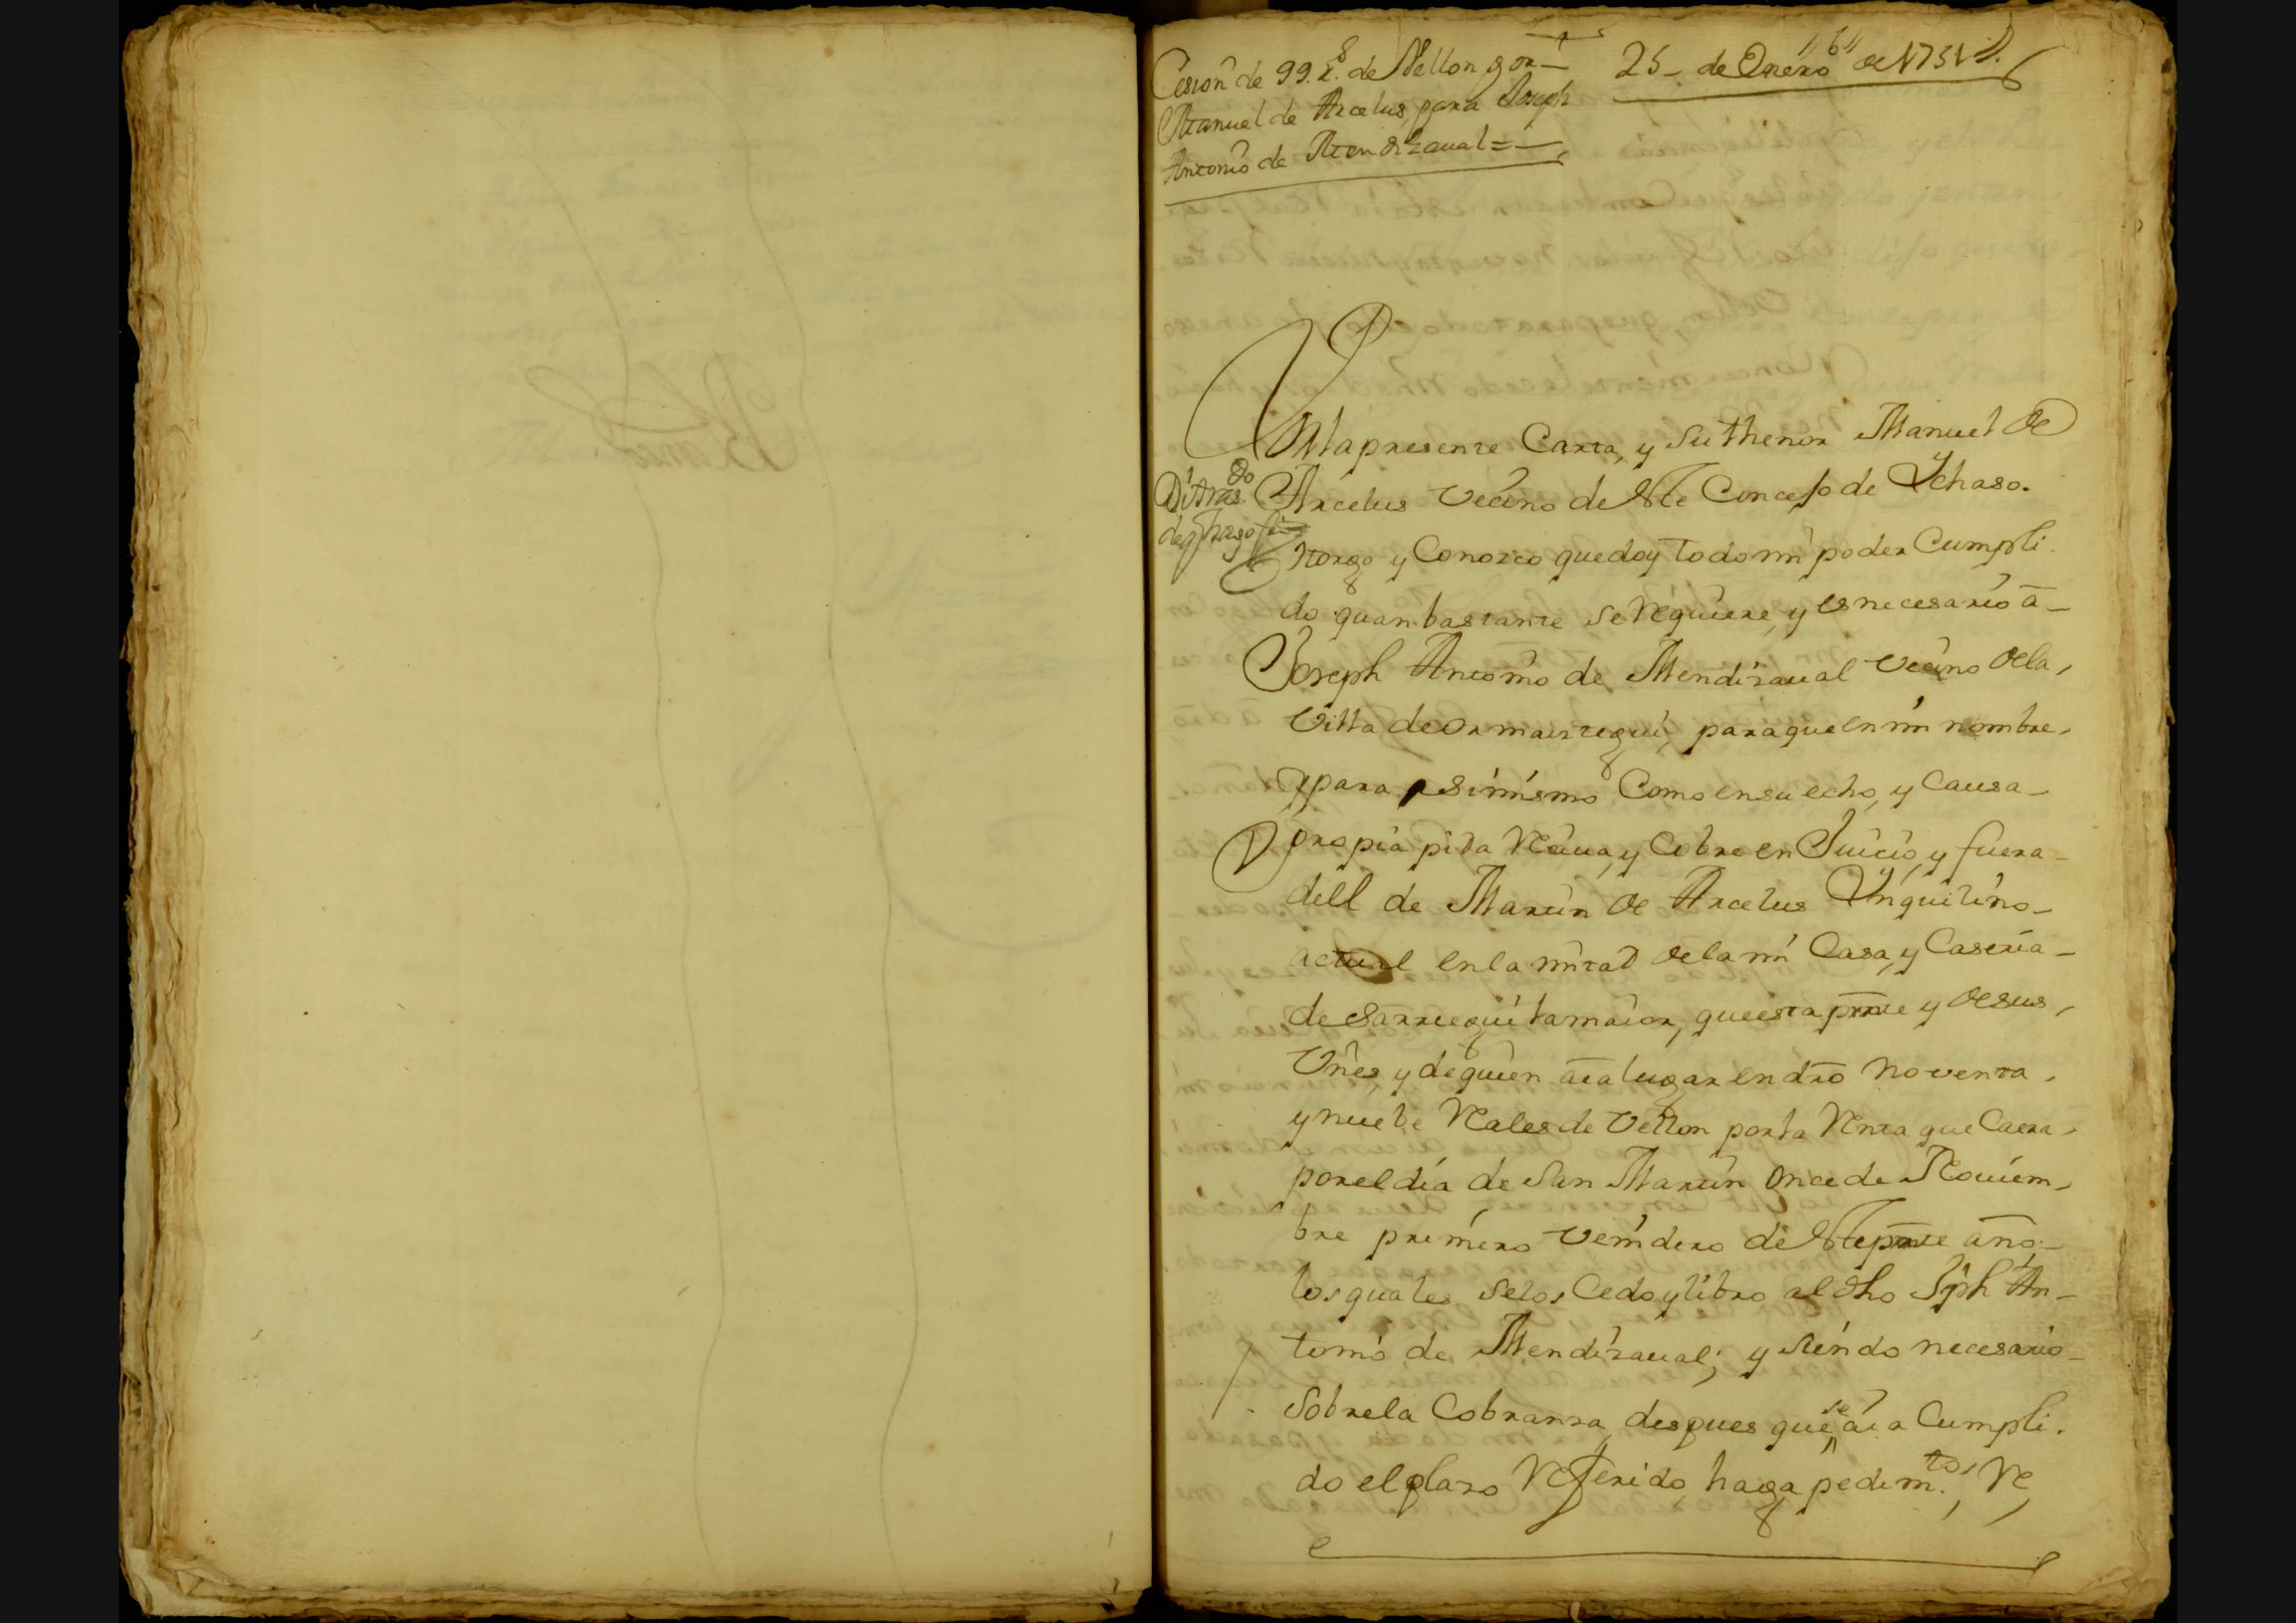 Cesion de 99. r.s de Vellon por
Manuel de Arcelus, para Joseph
Antonio de Mendizaual =
25 de Enero de 1751
"6"
En la presente Carta, y su thenor Manuel de
Arcelus Vecino de este Concejo de Ychaso.
Di tras.do
de
otorgo y Conozco que doy todo mi poder Cumpli
do quan bastante se Requiere, y es necesario à
Joseph Antonio de Mendizaual Vecino de la
Villa de ormaiztegui, para que en mi nombre,
y para si mismo Como en su echo, y Causa
propia pida Reciua, y Cobre en Juicio, y fuera
dell de Martin de Arcelus Ynquilino
actual en la mitad de la mi Casa, y Caseria
de Sarriegui la maior, que esta preste y de sus
Vnes, y de quien aia lugar en dro noventa
y nuebe Reales de Vellon por la Renta que Caera
por el dia de San Martin once de Nouiem
bre primero venidero de este preste año
los quales se los Cedo y libro al dho Jph An
tonio de Mendizaual; y siendo necesario
Sobre la Cobranza, despues que se aia Cumpli
do el plazo Referido haga pedim.to, Re
Blanco